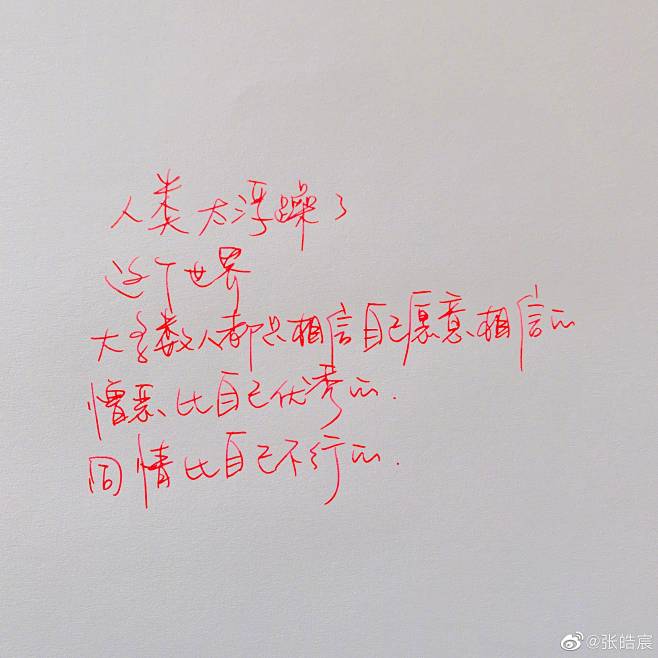 人类太浮躁了
这个世界
大多数人都只相信自己愿意相信的
憎恶比自己优秀的.
同情比自己不行的.
@张皓宸